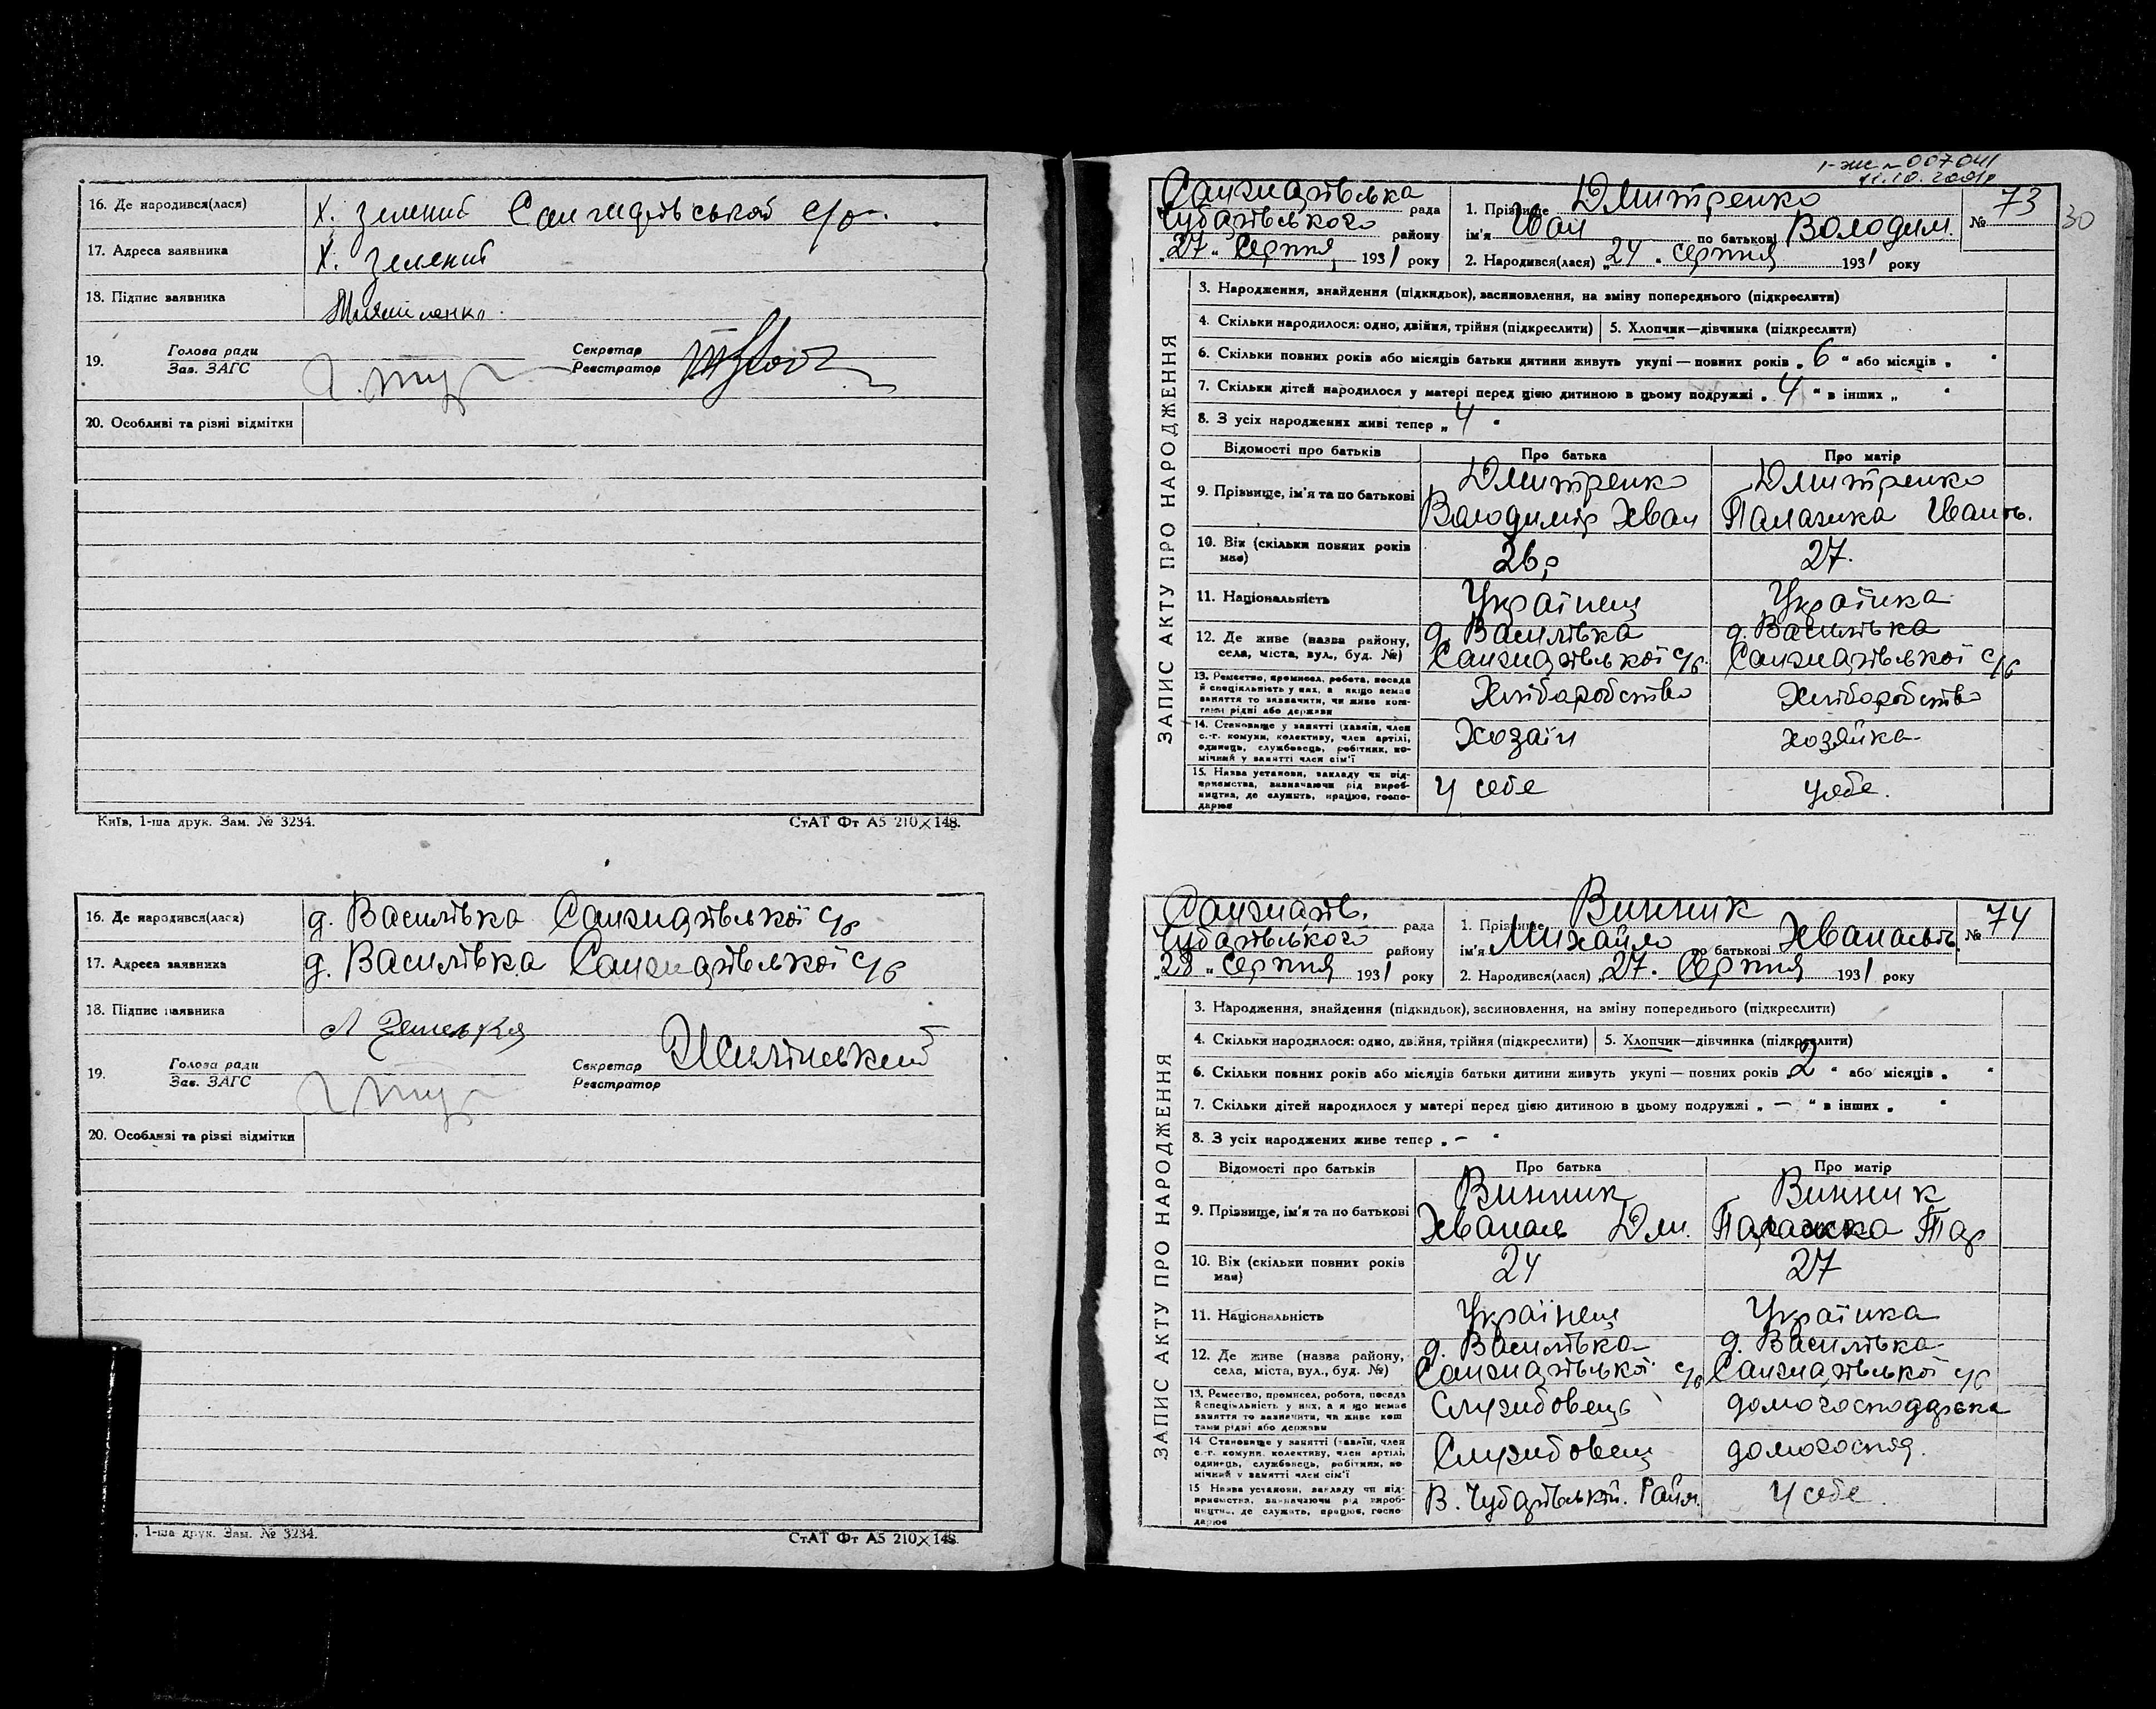 16. Де народився(лася) Х. Зелений Санжарівської с/р.
17. Адреса заявника Х. Зелений
18. Підпис заявника
19. Голова ради Зав. ЗАГС Секретар Реєстратор
20. Особливі та різні відмітки
Київ, 1-ша друк. Зам. № 3234. СтАТ Фт А5 210×148.
16. Де народився(лася) д. Василівка Санжарівської с/р
17. Адреса заявника д. Василівка Санжарівської с/р
18. Підпис заявника
19. Голова ради Зав. ЗАГС Секретар Реєстратор
20. Особливі та різні відмітки
1-ша друк. Зам. № 3234. СтАТ Фт А5 210×148.
007041
11.10.2001р
30
ЗАПИС АКТУ ПРО НАРОДЖЕННЯ
Санжарівська рада
Чубарівського району
„27„ Серпня 1931 року
1. Прізвище Дмитренко
ім'я Іван по батькові Володим.
№ 73
2. Народився(лася) „24„ серпня 1931 року
3. Народження, знайдення (підкидьок), засиновлення, на зміну попереднього (підкреслити)
4. Скільки народилося: одно, двійня, трійня (підкреслити) 5. Хлопчик—дівчинка (підкреслити)
6. Скільки повних років або місяців батьки дитини живуть укупі — повних років „6“ або місяців „ “
7. Скільки дітей народилося у матері перед цією дитиною в цьому подружжі „4“ в інших „ “
8. З усіх народжених живі тепер „4“
Відомості про батьків Про батька Про матір
9. Прізвище, ім'я та по батькові Дмитренко Дмитренко
Володимір Хван Палажка Іванів.
10. Вік (скільки повних років має) 26р 27.
11. Національність Українец Українка
12. Де живе (назва району, д. Василівка д. Василівка
села, міста, вул., буд. №) Санжарівської с/р. Санжарівської с/р
13. Ремество, промисел, робота, посада й спеціяльність у них, а якщо немає заняття то зазначити, чи живе коштами рідні або держави Хліборобство Хліборобство
14. Становище у занятті (хазяїн, член с.-г. комуни, колективу, член артілі, одинець, службовець, робітник, помічний у занятті член сім'ї Хозаїн хозяйка
15. Назва установи, закладу чи підприємства, зазначаючи рід виробництва, де служить, працює, господарює У себе у себе.
ЗАПИС АКТУ ПРО НАРОДЖЕННЯ
Санжарів. рада
Чубарівського району
„28„ Серпня 1931 року
1. Прізвище Винник
ім'я Михайло по батькові Хванасьів.
№ 74
2. Народився(лася) „27. Серпня 1931 року
3. Народження, знайдення (підкидьок), засиновлення, на зміну попереднього (підкреслити)
4. Скільки народилося: одно, двійня, трійня (підкреслити) 5. Хлопчик—дівчинка (підкреслити)
6. Скільки повних років або місяців батьки дитини живуть укупі — повних років „2“ або місяців „ “
7. Скільки дітей народилося у матері перед цією дитиною в цьому подружжі „—“ в інших „ “
8. З усіх народжених живе тепер „—“
Відомості про батьків Про батька Про матір
9. Прізвище, ім'я та по батькові Винник Винник
Хванась Дм. Палажка Пар
10. Вік (скільки повних років має) 24 27
11. Національність Українец Українка
12. Де живе (назва району, д. Василівка д. Василівка
села, міста, вул., буд. №) Санжарівської с/р Санжарівської с/р
13. Ремество, промисел, робота, посада й спеціяльність у них, а якщо немає заняття то зазначити, чи живе коштами рідні або держави Службовець домогосподарка
14. Становище у занятті (хазяїн, член с.-г. комуни, колективу, член артілі, одинець, службовець, робітник, помічний у занятті член сім'ї Службовец домогоспод.
15. Назва установи, закладу чи підприємства, зазначаючи рід виробництва, де служить, працює, господарює В. Чубарівській. У себе.